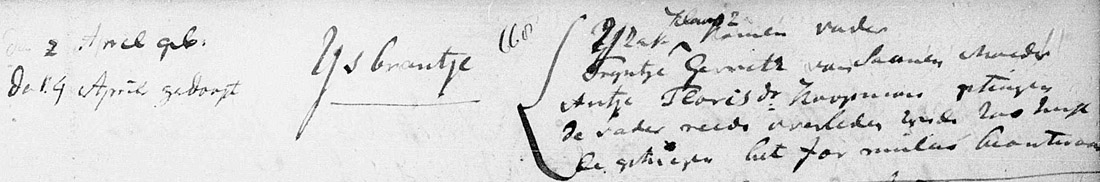 den 2 April geb.
de 19 April gedoopt
Ysbrantje
168
Klaasz
Yzak Komen vader
Tryntje Gerrits van Saanen Moeder
Antje Floris dr Koopman getuigen
de vader reeds overleden zynde
de getuigen het formulier beantwoor